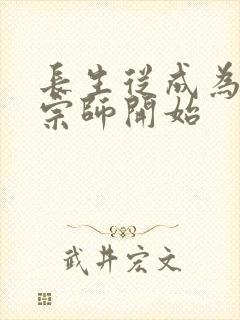 長生從成為
宗師開始
武井宏文